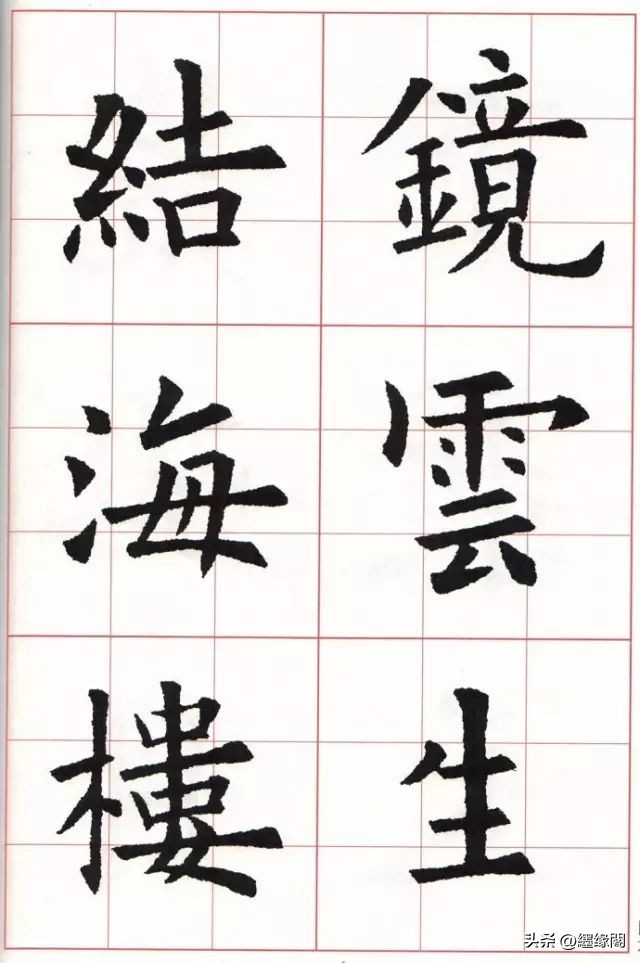 鏡雲生
結海樓
头条 @纒缘閣